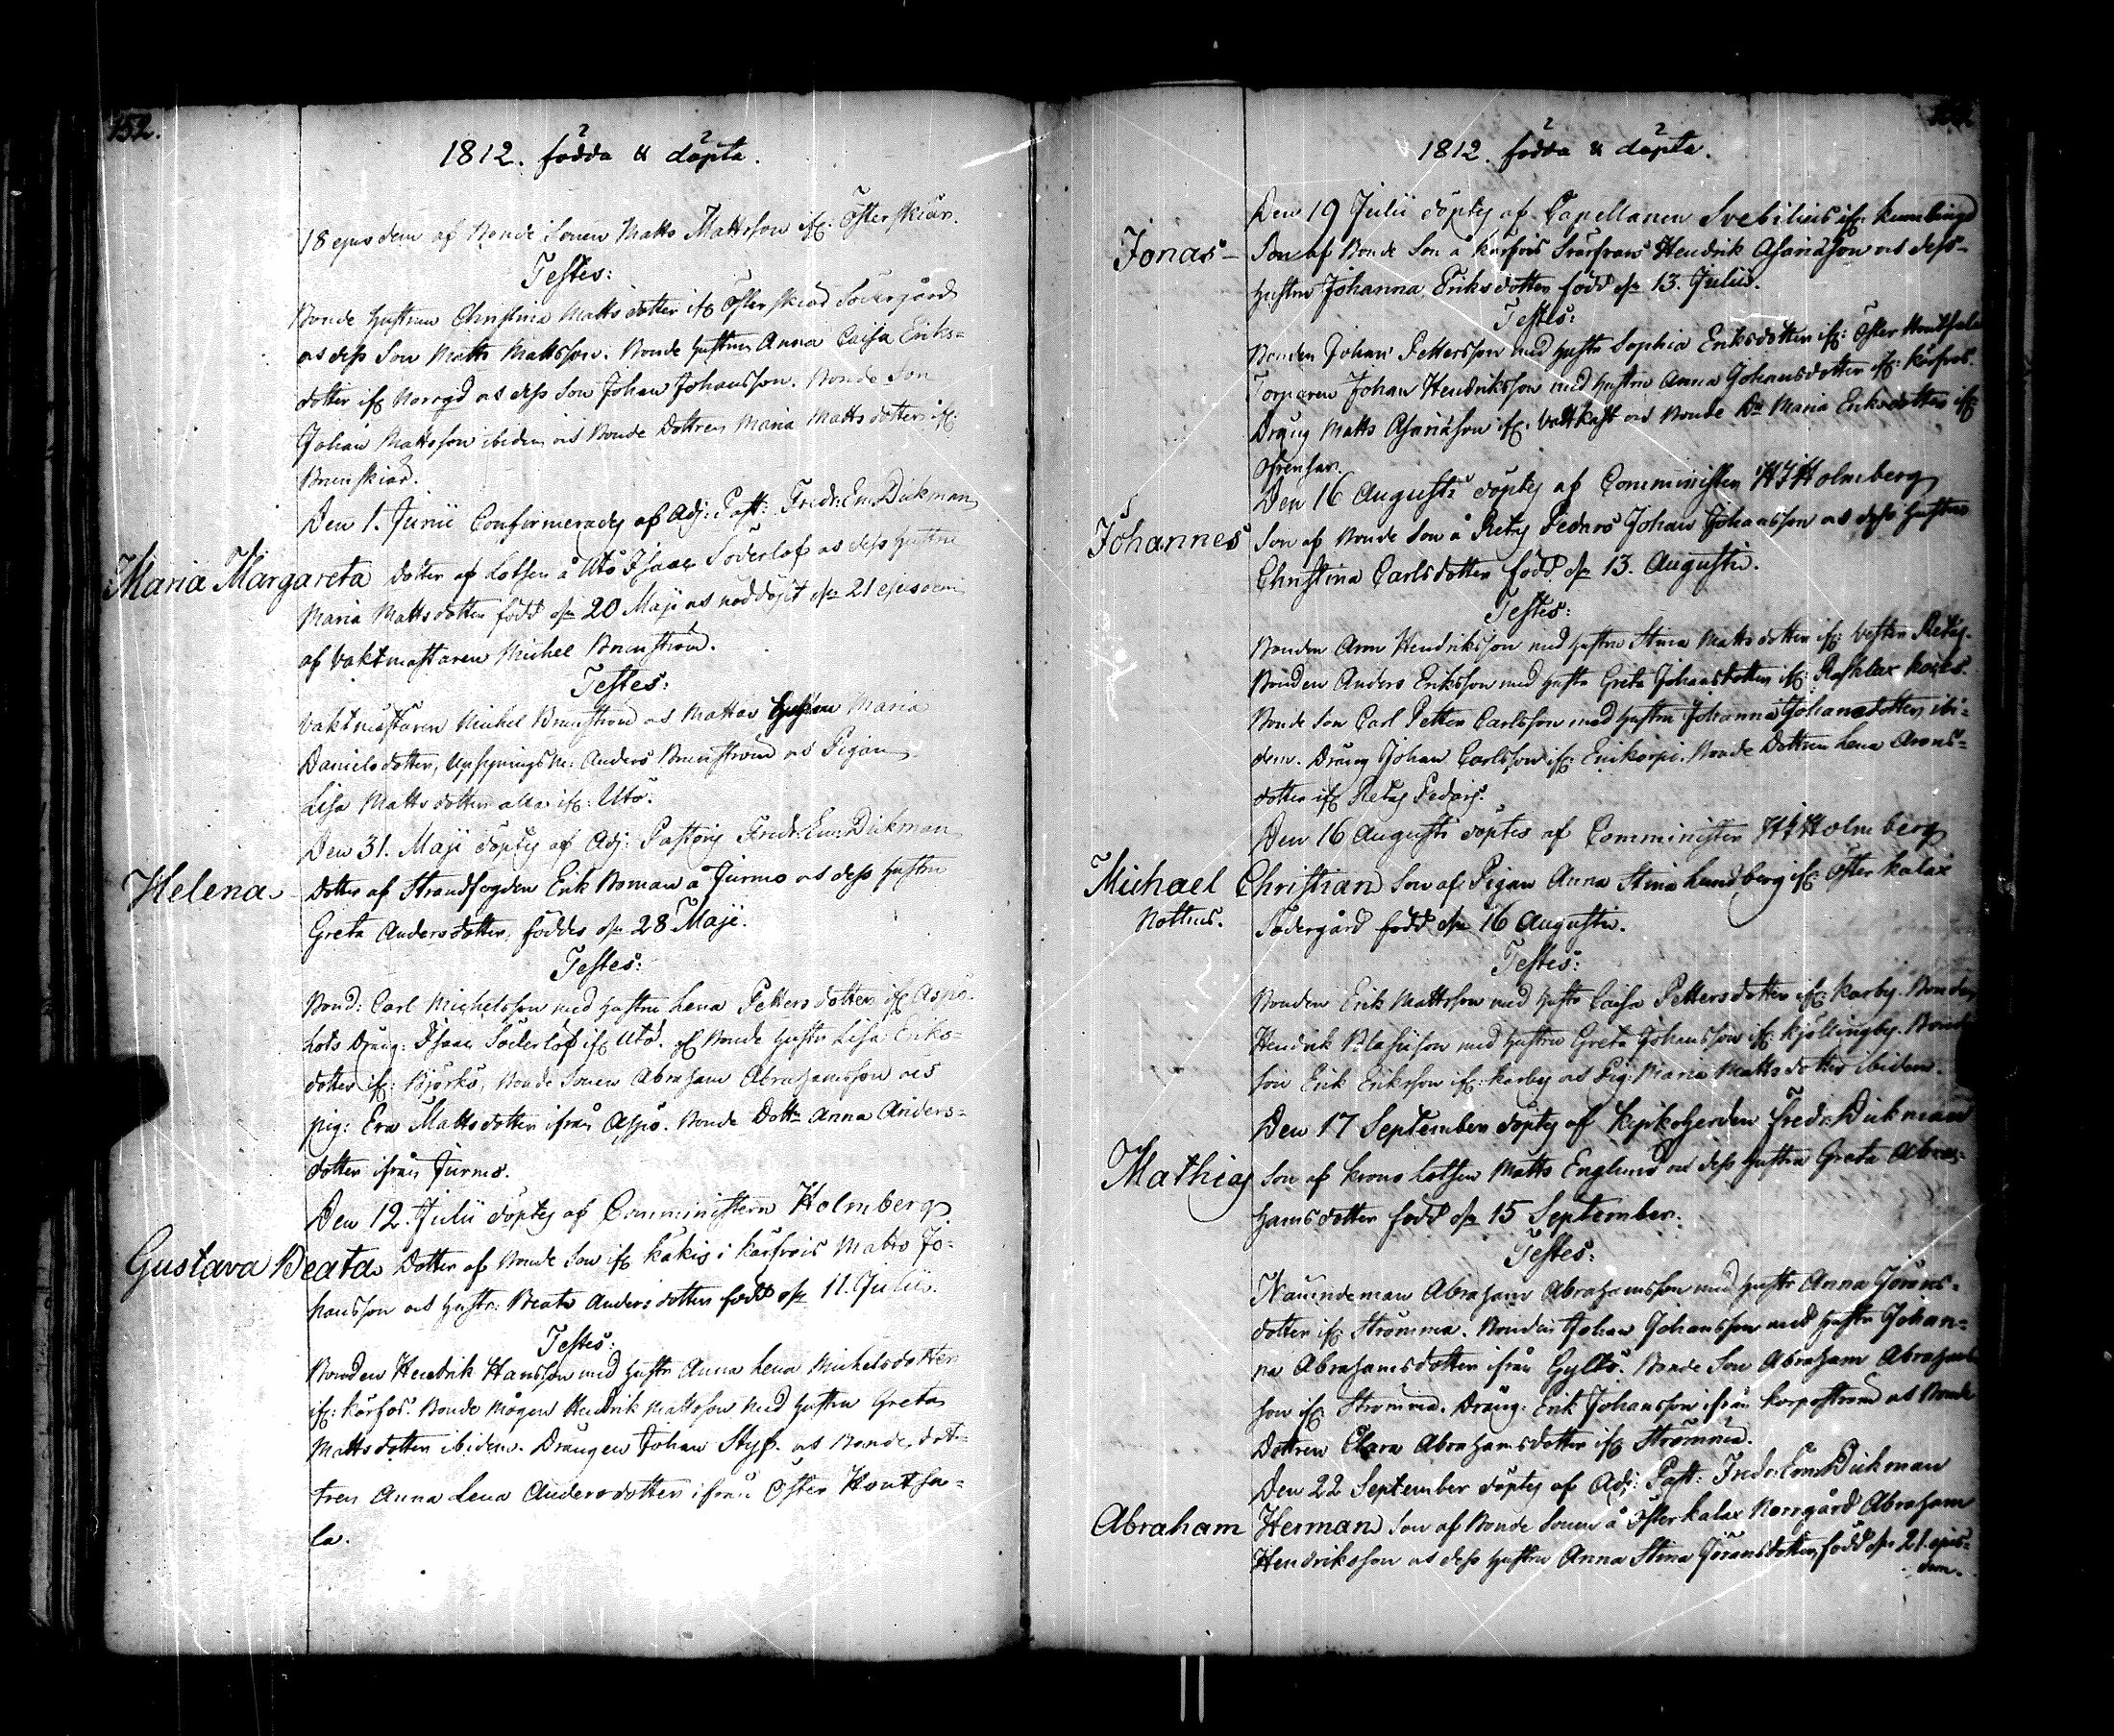 152.
1812. födda & döpta.
18 ejusdem af Bonde Sonen Matts Mattsson ifr: Österskiär.
Testes:
Bonde hustrun Christina Mattsdotter ifr Österskiär Södergård
os dess Son Matts Mattsson. Bonde hustrun Anna Caisa Eriks=
dotter ifr Norrgd os dess Son Johan Johansson. Bonde Son
Johan Mattsson ibidem os Bonde Dottren Maria Mattsdotter ifr:
Brunskiär.
Den 1. Junii Confirmerades af Adj: Past: Fredr: Em: Dickman
Maria Margareta dotter af Lotsen å Utö Isaac Söderlöf os dess hustru
Maria Mattsdotter född d. 20 Maji os nöddöpt d. 21 ejusdem
af Vaktmästaren Michel Brunström.
Testes:
Vaktmästaren Michel Brunström os Mattas hustru Maria
Danielsdotter, Upsyningsm: Anders Brunström os Pigan
Lisa Mattsdotter alla ifr: Utö.
Den 31. Maji döptes af Adj: Pastoris Fredr: Em: Dickman
Helena dotter af Strandfogden Erik Boman å Jurmo os dess hustru
Greta Andersdotter, föddes d. 28 Maji.
Testes:
Bond: Carl Michelsson med hustru Lena Pettersdotter ifr Aspö.
Lots Dräng: Isaac Söderlöf ifr Utö. Bonde hustr Lisa Eriks=
dotter ifr: Björkö, Bonde Sonen Abraham Abrahamsson os
pig: Eva Mattsdotter ifrån Aspö. Bonde Dottr Anna Anders=
dotter ifrån Jurmo.
Den 12. Julii döptes af Comministern Holmberg
Gustava Beata Dotter af Bonde Son ifr Käkis i Kårfvois Matts Jo=
hansson os hustr: Beata Andersdotter född d. 11. Julii.
Testes:
Bonden Hendrik Hansson med hustr Anna Lena Michelsdotter
ifr: Korfos. Bonde mågen Hendrik Mattsson med hustru Greta
Mattsdotter ibidem. Drängen Johan Styf os Bonde, dot=
tren Anna Lena Andersdotter ifrån Öster Hontsa=
la.
1812. födda & döpta.
Den 19 Julii döptes af Capellanen Svebilius ifr: Kumlinge
Jonas Son af Bonde Son å Kårfvois Hendrik Asariäson os dess
hustru Johanna Eriksdotter född d. 13. Julii.
Testes:
Bonden Johan Pettersson med hustr Sophia Eriksdotter ifr: Öster Hontsala
Torparen Johan Hendriksson med hustru Anna Johansdotter ifr: Korfvos.
Dräng Matts Asariäson ifr. Vattkast os Bonde Dr Maria Eriksdotter ifr:
Ofvensar.
Den 16 Augusti döptes af Comministern HJHolmberg
Johannes Son af Bonde Son å Retais Pedars Johan Johansson os dess hustru
Christina Carlsdotter född d. 13. Augusti.
Testes:
Bonden Aron Hendriksson med hustru Stina Mattsdotter ifr: Vester Retais.
Bonden Anders Eriksson med hustr Greta Johansdotter ifr: Rosklax
Bonde Son Carl Petter Carlsson med hustru Johanna Johansdotter ibi=
dem. Dräng Johan Carlsson ifr: Bonde Dottren Lena Arons=
dotter ifr Retais Pedars.
Den 16 Augusti döptes af Comministern HJHolmberg
Michael Christian Son af Pigan Anna Stina Lundberg ifr Österkalax
Nothus. Södergård född d. 16 Augusti.
Testes:
Bonden Erik Mattsson med hustr Caisa Pettersdotter ifr: Karby. Bonden
Hendrik Blasiison med hustru Greta Johansson ifr: Kjällingby. Bond
son Erik Eriksson ifr: Karby os Pig: Maria Mattsdotter ibidem.
Den 17 September döptes af Kyrkoherden Fredr: Dickman
Mathias Son af Krono Lotsen Matts Englund os dess hustru Greta Abra=
hamsdotter född d. 15 September.
Testes:
Nämndeman Abraham Abrahamsson med hustr Anna Jörans=
dotter ifr Strömma. Bonden Johan Johansson med hustr Johan=
na Abrahamsdotter ifrån Gyltö. Bonde Son Abraham Abrahams
son ifr Strömma. Dräng: Erik Johansson ifrån Korpoström os Bonde
Dottren Clara Abrahamsdotter ifr Strömma.
Den 22 September döptes af Adj: Past: Fredr: Em: Dickman
Abraham Herman Son af Bonde Sonen å Österkalax Norrgård Abraham
Hendriksson os dess hustru Anna Stina Jöransdotter, född d. 21. ejus=
dem.